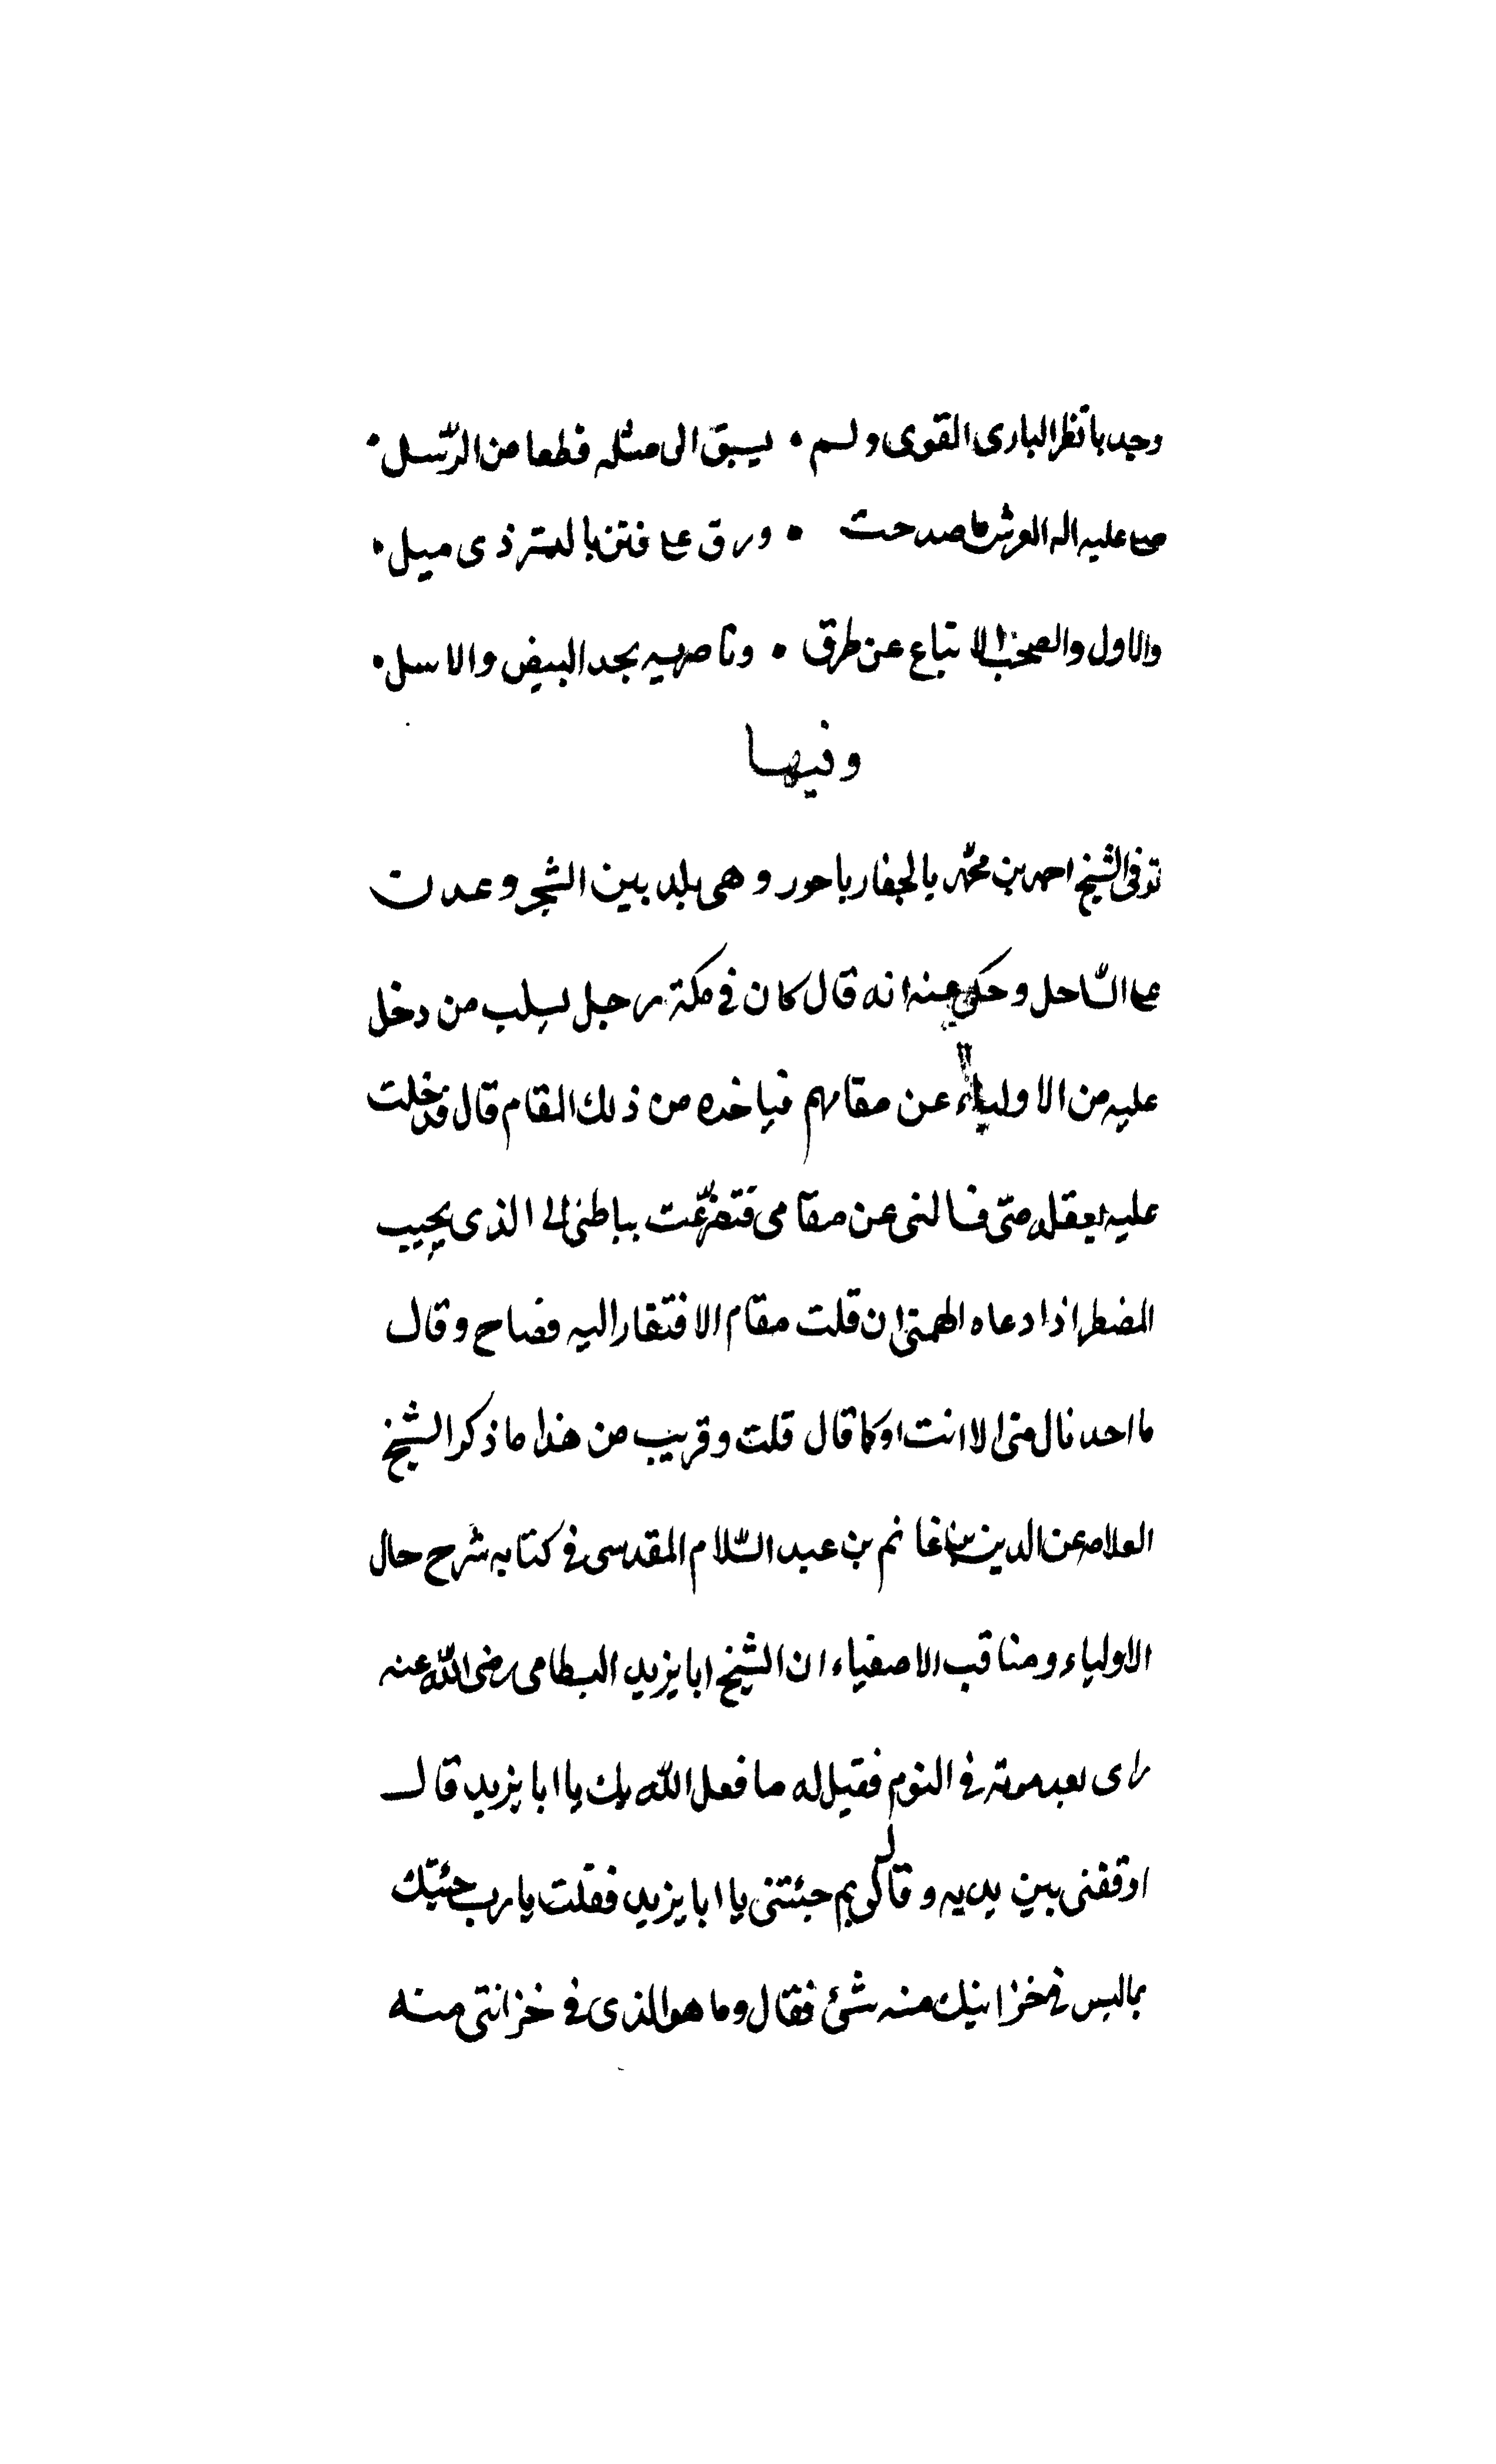 وجد بانظر البارى القوى ولم • يسبق الى مثله قطعا من الرّسل •
صلى عليه اله العرش ما صدحت • ورق على فنن بالستر ذى ميل •
والاول والصحب الاتباع عن طرق • وناصريه بحد البيض والاسل •
وفيها
توفى الشيخ احمد بن محمّد بالجفار باحور وهى بلد بين الشحر وعدن
على السّاحل وحكى عنه انه قال كان فى مكة رجل يسلب من دخل
عليه من الاولياء عن مقامهم فياخده من ذلك المقام قال فدخلت
عليه بعقله حتى فالنى عن مقامى فتضرّعت بباطنى الى الذى يجيب
المضطر اذا دعاه الهمتى ان قلت مقام الافتقار اليه فصاح وقال
ما احد نال منى الا انت او كما قال قلت وقريب من هذا ما ذكر الشيخ
العلامه عز الدين بن غانم بن عبد السّلام المقدسى فى كتابه شرح حال
الاولياء ومناقب الاصفياء ان الشيخ ابا يزيد البسطامى رضى اللّه عنه
راى بعد موته فى النوم فقيل له ما فعل اللّه بك يا ابا يزيد قال
اوقفنى بين يديه وقال لى بم جئتنى يا ابا يزيد فقلت يا رب جئتك
بما ليس فى خزاينك منه شئ فقال وما هو الذى فى خزانتى منه